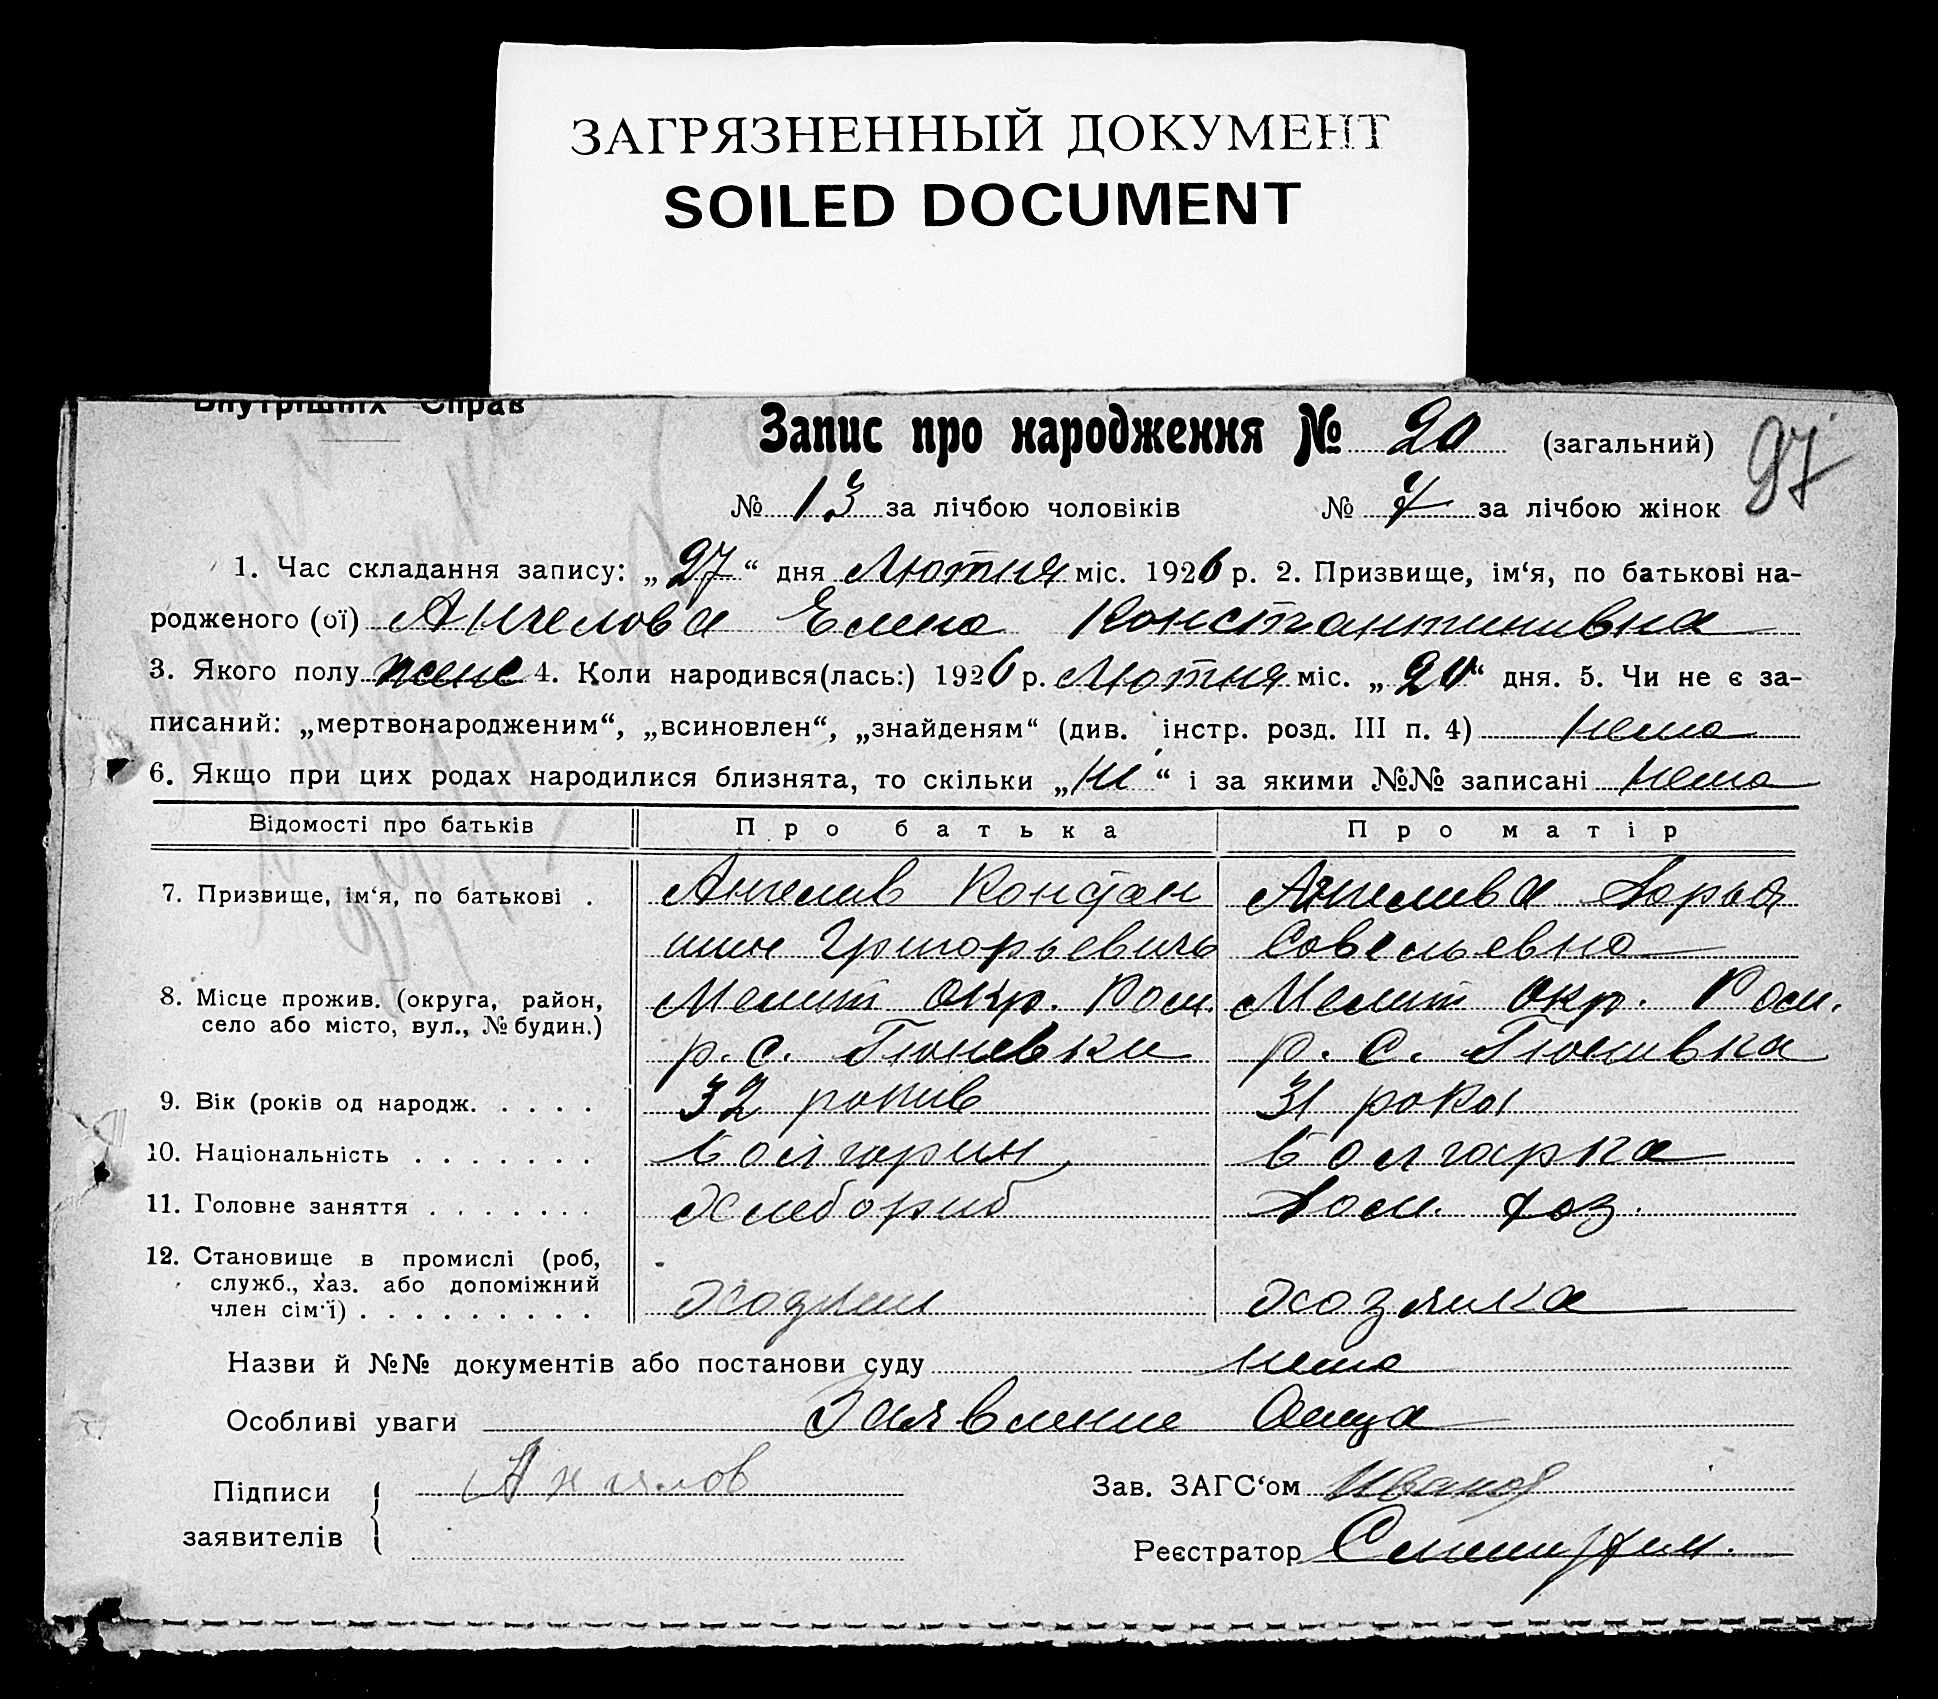 ЗАГРЯЗНЕННЫЙ ДОКУМЕНТ
SOILED DOCUMENT
Внутрішніх Справ
Запис про народження № 20 (загальний) 97
№ 13 за лічбою чоловіків № 7 за лічбою жінок
1. Час складання запису: „27“ дня Лютня міс. 1926 р. 2. Призвище, ім‘я, по батькові на-
родженого (ої) Ангелова Елена Константинивна
3. Якого полу жене 4. Коли народився(лась:) 1926 р. Лютня міс. „20“ дня. 5. Чи не є за-
писаний: „мертвонародженим“, „всиновлен“, „знайденям“ (див. інстр. розд. III п. 4) нема
6. Якщо при цих родах народилися близнята, то скільки „ни“ і за якими №№ записані нема
Відомості про батьків Про батька Про матір
7. Призвище, ім‘я, по батькові . Ангелив Констан Ангелива Дарья
тин Григорьевичь Савельевна
8. Місце прожив. (округа, район, Мелит окр. Ром. Мелит окр. Ром.
село або місто, вул., № будин.) р. с. Гюневки р. с. Гюнивка
9. Вік (років од народж. . . . . 32 рокив 31 рока
10. Національність . . . . . . . болгарин болгарка
11. Головне заняття . . . . . . . Хлебориб Дом. хоз.
12. Становище в промислі (роб,
служб., хаз. або допоміжний
член сім‘ї) . . . . . . . . . Хозяин Хозяика
Назви й №№ документів або постанови суду нема
Особливі уваги Заявление Отца
Підписи Ангилов Зав. ЗАГС‘ом Иванов
заявителів Реєстратор